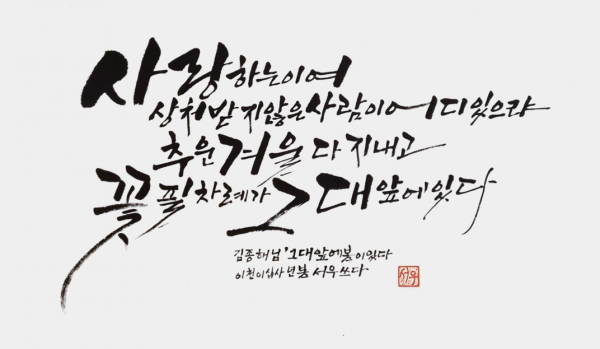 사랑하는이여
상처받지않은사람이어디있으랴
추운겨울다지내고
꽃필차례가그대앞에있다
김종해님 '그대앞에봄이있다
이천이십사년봄 서우쓰다
서우